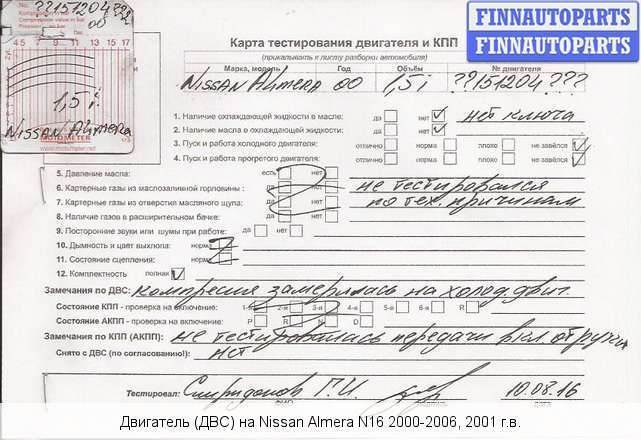 ??151204??
00
Compression in kg/cm²
4 5 7 9 11 13 15 17
1,5 i
NISSAN Almera
MOTOMETER
www.motometer.net
FINNAUTOPARTS
FINNAUTOPARTS
Карта тестирования двигателя и КПП
(прикалывать к листу разборки автомобиля)
Марка, модель Год Объём № двигателя
Nissan Almera 00 1,5 i ??151204???
1. Наличие охлаждающей жидкости в масле: да нет нет ключа
2. Наличие масла в охлаждающей жидкости: да нет
3. Пуск и работа холодного двигателя: отлично норма плохо не завёлся
4. Пуск и работа прогретого двигателя: отлично норма плохо не завёлся
5. Давление масла: есть нет
6. Картерные газы из маслозаливной горловины: да нет не тестировался
7. Картерные газы из отверстия масляного щупа: да нет по тех. причинам
8. Наличие газов в расширительном бачке: да нет
9. Посторонние звуки или шумы при работе: да нет
10. Дымность и цвет выхлопа: норма
11. Состояние сцепления: норма
12. Комплектность полная
Замечания по ДВС: компресия замерялась на холод. двиг.
Состояние КПП - проверка на включение: 1-я 2-я 3-я 4-я 5-я 6-я R
Состояние АКПП - проверка на включение: P R N D
Замечания по КПП (АКПП): не тестировалась передачи вкл от ручки
Снято с ДВС (по согласованию!): нет
Тестировал: Спиридонов Г.И. 10.08.16
ФИО подпись дата
Двигатель (ДВС) на Nissan Almera N16 2000-2006, 2001 г.в.